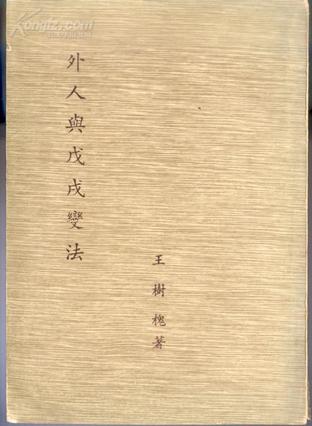 Kongfz.com
外人與戊戌變法
王樹槐著